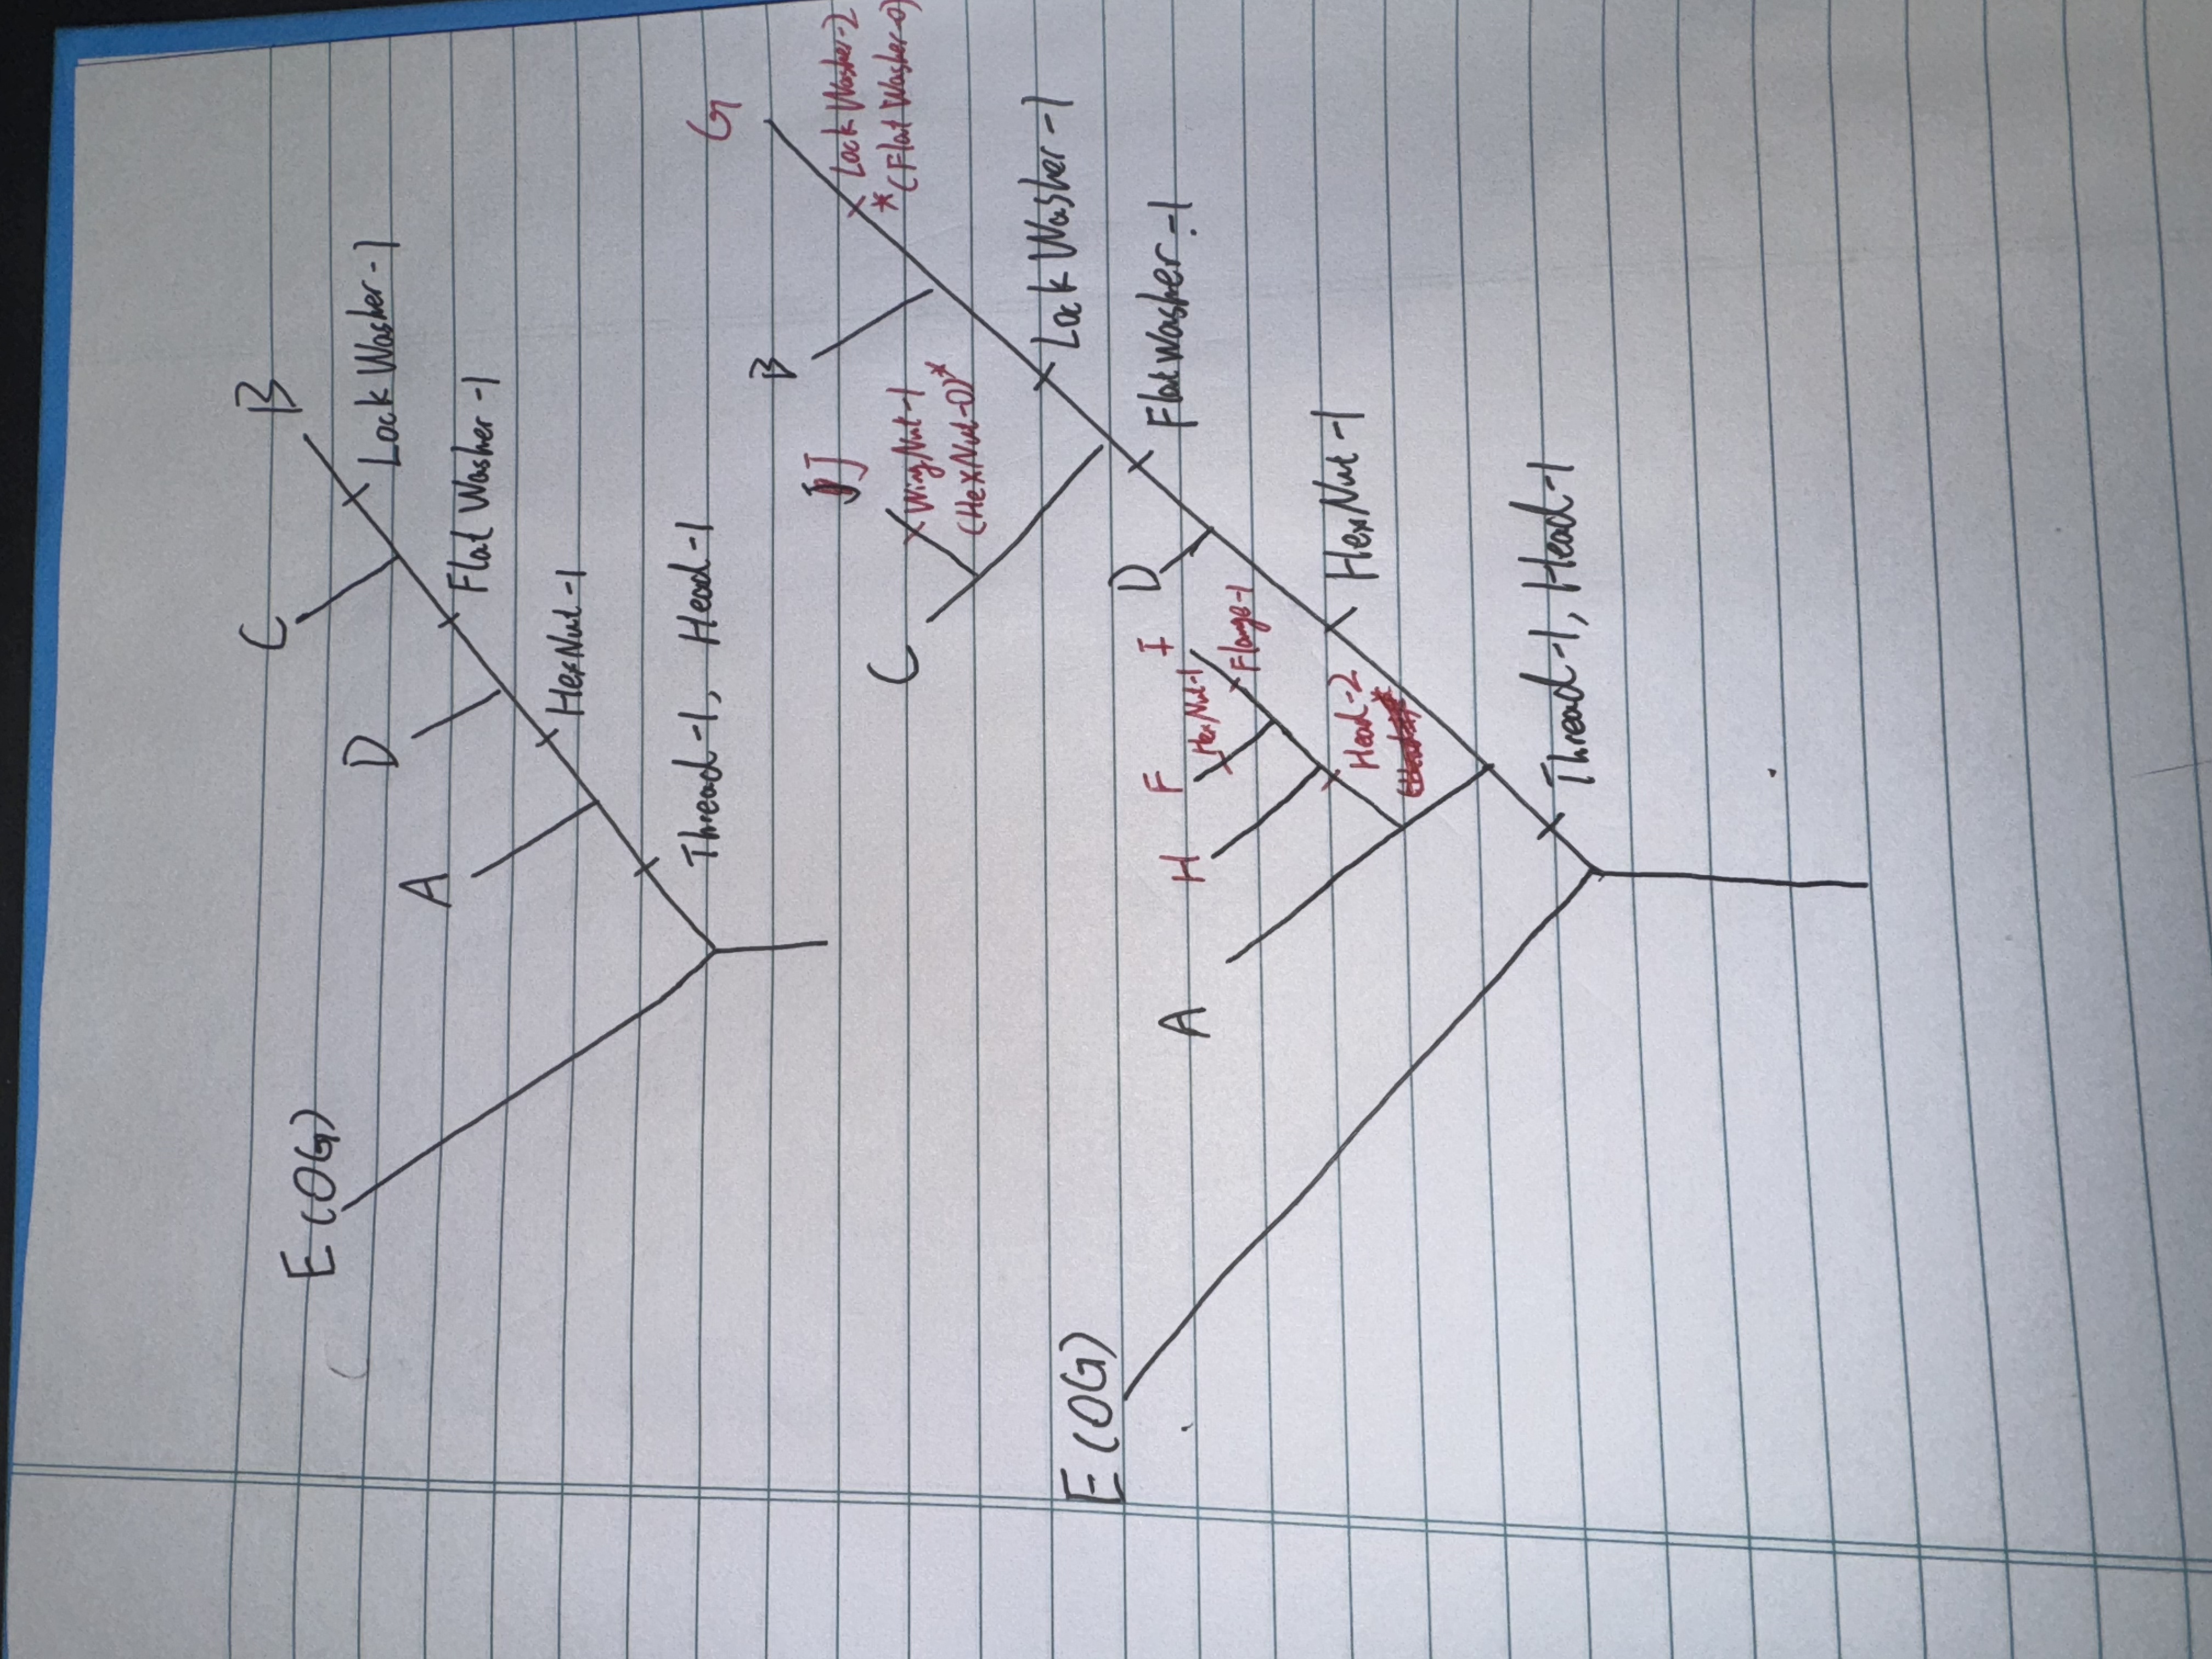 C
B
E (OG)
D
Lock Washer-1
A
Flat Washer-1
HexNut-1
Thread-1, Head-1
G
B
J
Lock Washer-2
*(Flat Washer-0)
C
WingNut-1
(HexNut-0)*
Lock Washer-1
E (OG)
D
A
H
F
I
Flatwasher-1
HexNut-1
Flange-1
HexNut-1
Head-2
Thread-1, Head-1